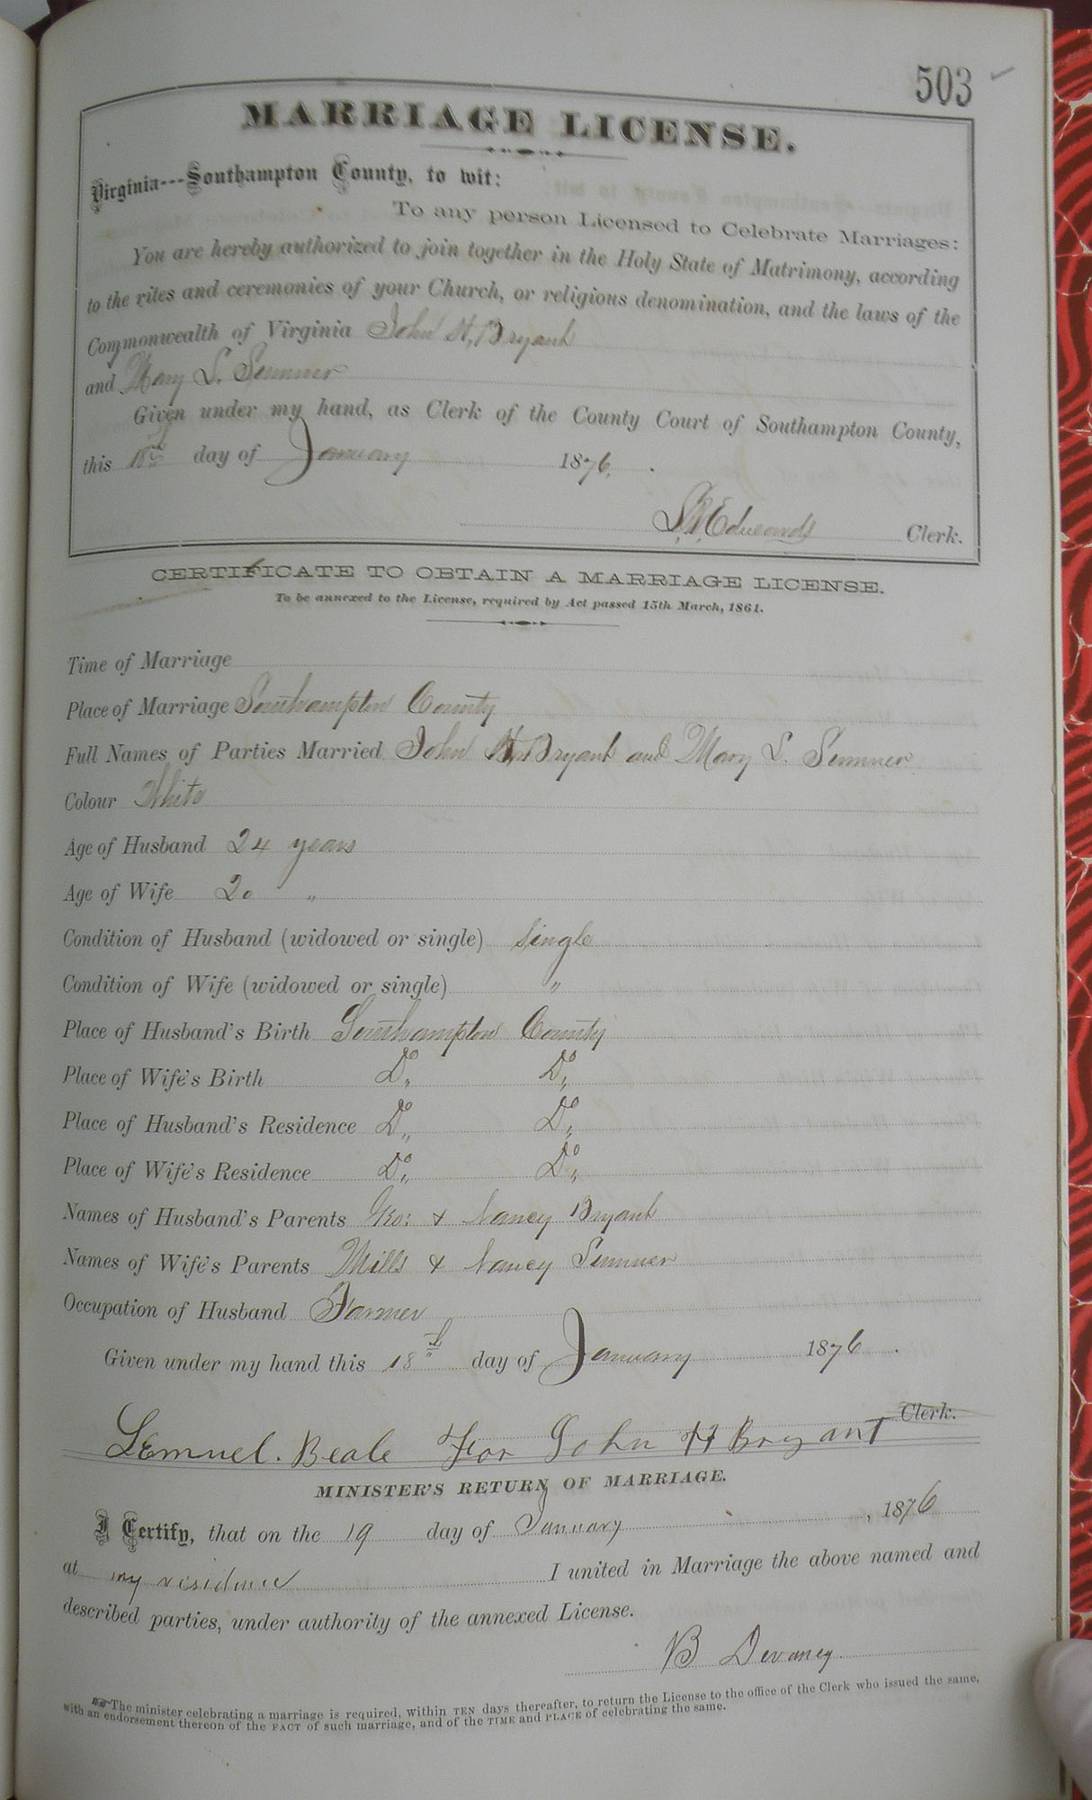 503
MARRIAGE LICENSE.
Virginia---Southampton County, to wit:
To any person Licensed to Celebrate Marriages:
You are hereby authorized to join together in the Holy State of Matrimony, according
to the rites and ceremonies of your Church, or religious denomination, and the laws of the
Commonwealth of Virginia John H. Bryant
and Mary L. Sumner
Given under my hand, as Clerk of the County Court of Southampton County,
this 18th day of January 1876.
L. R. Edwards Clerk.
CERTIFICATE TO OBTAIN A MARRIAGE LICENSE.
To be annexed to the License, required by Act passed 15th March, 1861.
Time of Marriage
Place of Marriage Southampton County
Full Names of Parties Married John H. Bryant and Mary L. Sumner
Colour White
Age of Husband 24 years
Age of Wife 20 "
Condition of Husband (widowed or single) Single
Condition of Wife (widowed or single) "
Place of Husband's Birth Southampton County
Place of Wife's Birth Do Do
Place of Husband's Residence Do Do
Place of Wife's Residence Do Do
Names of Husband's Parents Geo: & Nancy Bryant
Names of Wife's Parents Mills & Nancy Sumner
Occupation of Husband Farmer
Given under my hand this 18th day of January 1876.
Clerk.
Lemuel. Beale For John H Bryant
MINISTER'S RETURN OF MARRIAGE.
I Certify, that on the 19 day of January, 1876
at my residence I united in Marriage the above named and
described parties, under authority of the annexed License.
B Devaney
The minister celebrating a marriage is required, within TEN days thereafter, to return the License to the office of the Clerk who issued the same,
with an endorsement thereon of the FACT of such marriage, and of the TIME and PLACE of celebrating the same.